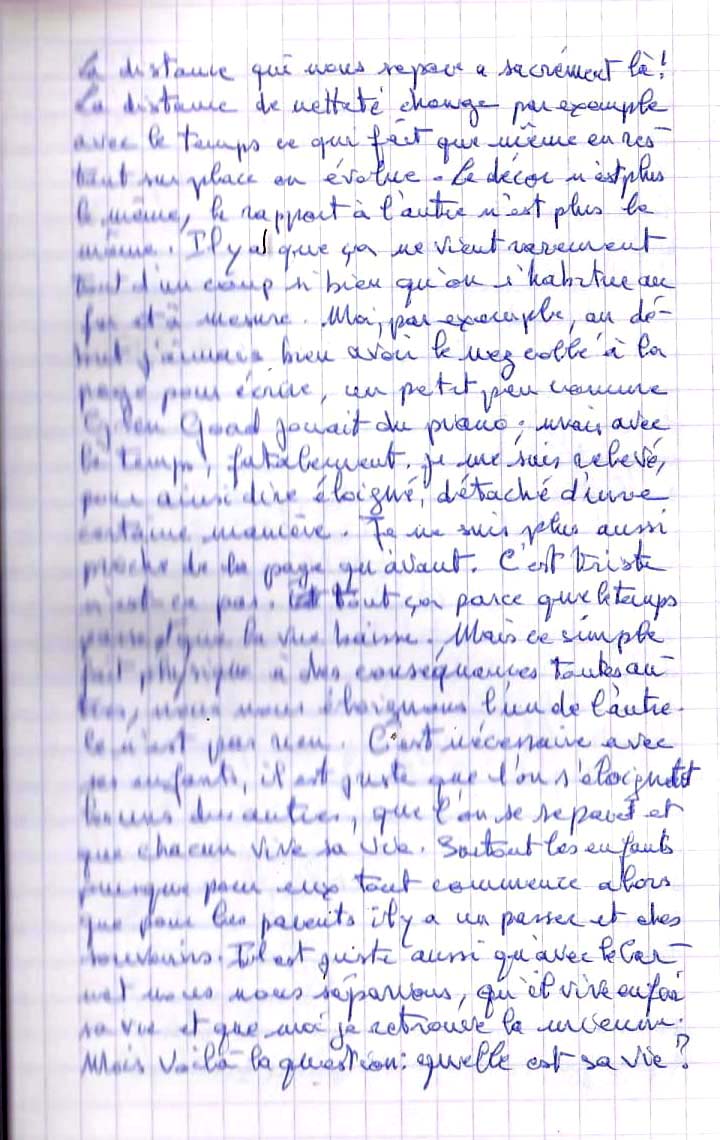 La distance qui nous separe a sacrément là!
La distance de netteté change par exemple
avec le temps ce qui fait que même en res-
tant sur place on évolue. Le décor n'est plus
le même, le rapport à l'autre n'est plus le
même. Il y a que ça ne vient rarement
tout d'un coup si bien qu'on s'habitue au
fur et à mesure. Moi, par exemple, au dé-
but j'aimais bien avoir le nez collé à la
page pour écrire, un petit peu comme
Glen Goad jouait du piano; mais avec
le temps, fatalement, je me suis relevé,
pour ainsi dire éloigné, détaché d'une
certaine manière. Je ne suis plus aussi
proche de la page qu'avant. C'est triste
n'est-ce pas. Et tout ça parce que le temps
passe et que la vue baisse. Mais ce simple
fait physique à des conséquences toutes au-
tres, nous nous éloignons l'un de l'autre.
Ce n'est pas rien. C'est nécessaire avec
ses enfants, il est juste que l'on s'éloigne
les uns des autres, que l'on se separe et
que chacun vive sa vie. Surtout les enfants
puisque pour eux tout commence alors
que pour les parents il y a un passer et des
souvenirs. Il est juste aussi qu'avec le Car-
net nous nous séparions, qu'il vive enfin
sa vie et que moi je retrouve la mienne.
Mais voilà la question: quelle est sa vie?